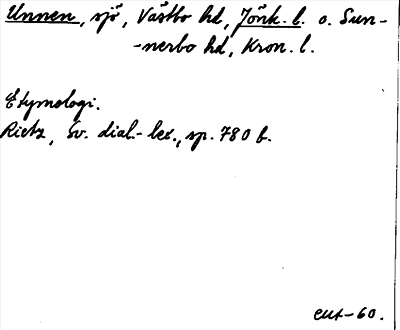 Unnen, sjö, Västbo hd, Jönk. l. o. Sun-
-nerbo hd, Kron. l.
Etymologi.
Rietz, Sv. dial.-lex., sp. 780 b.
-60.